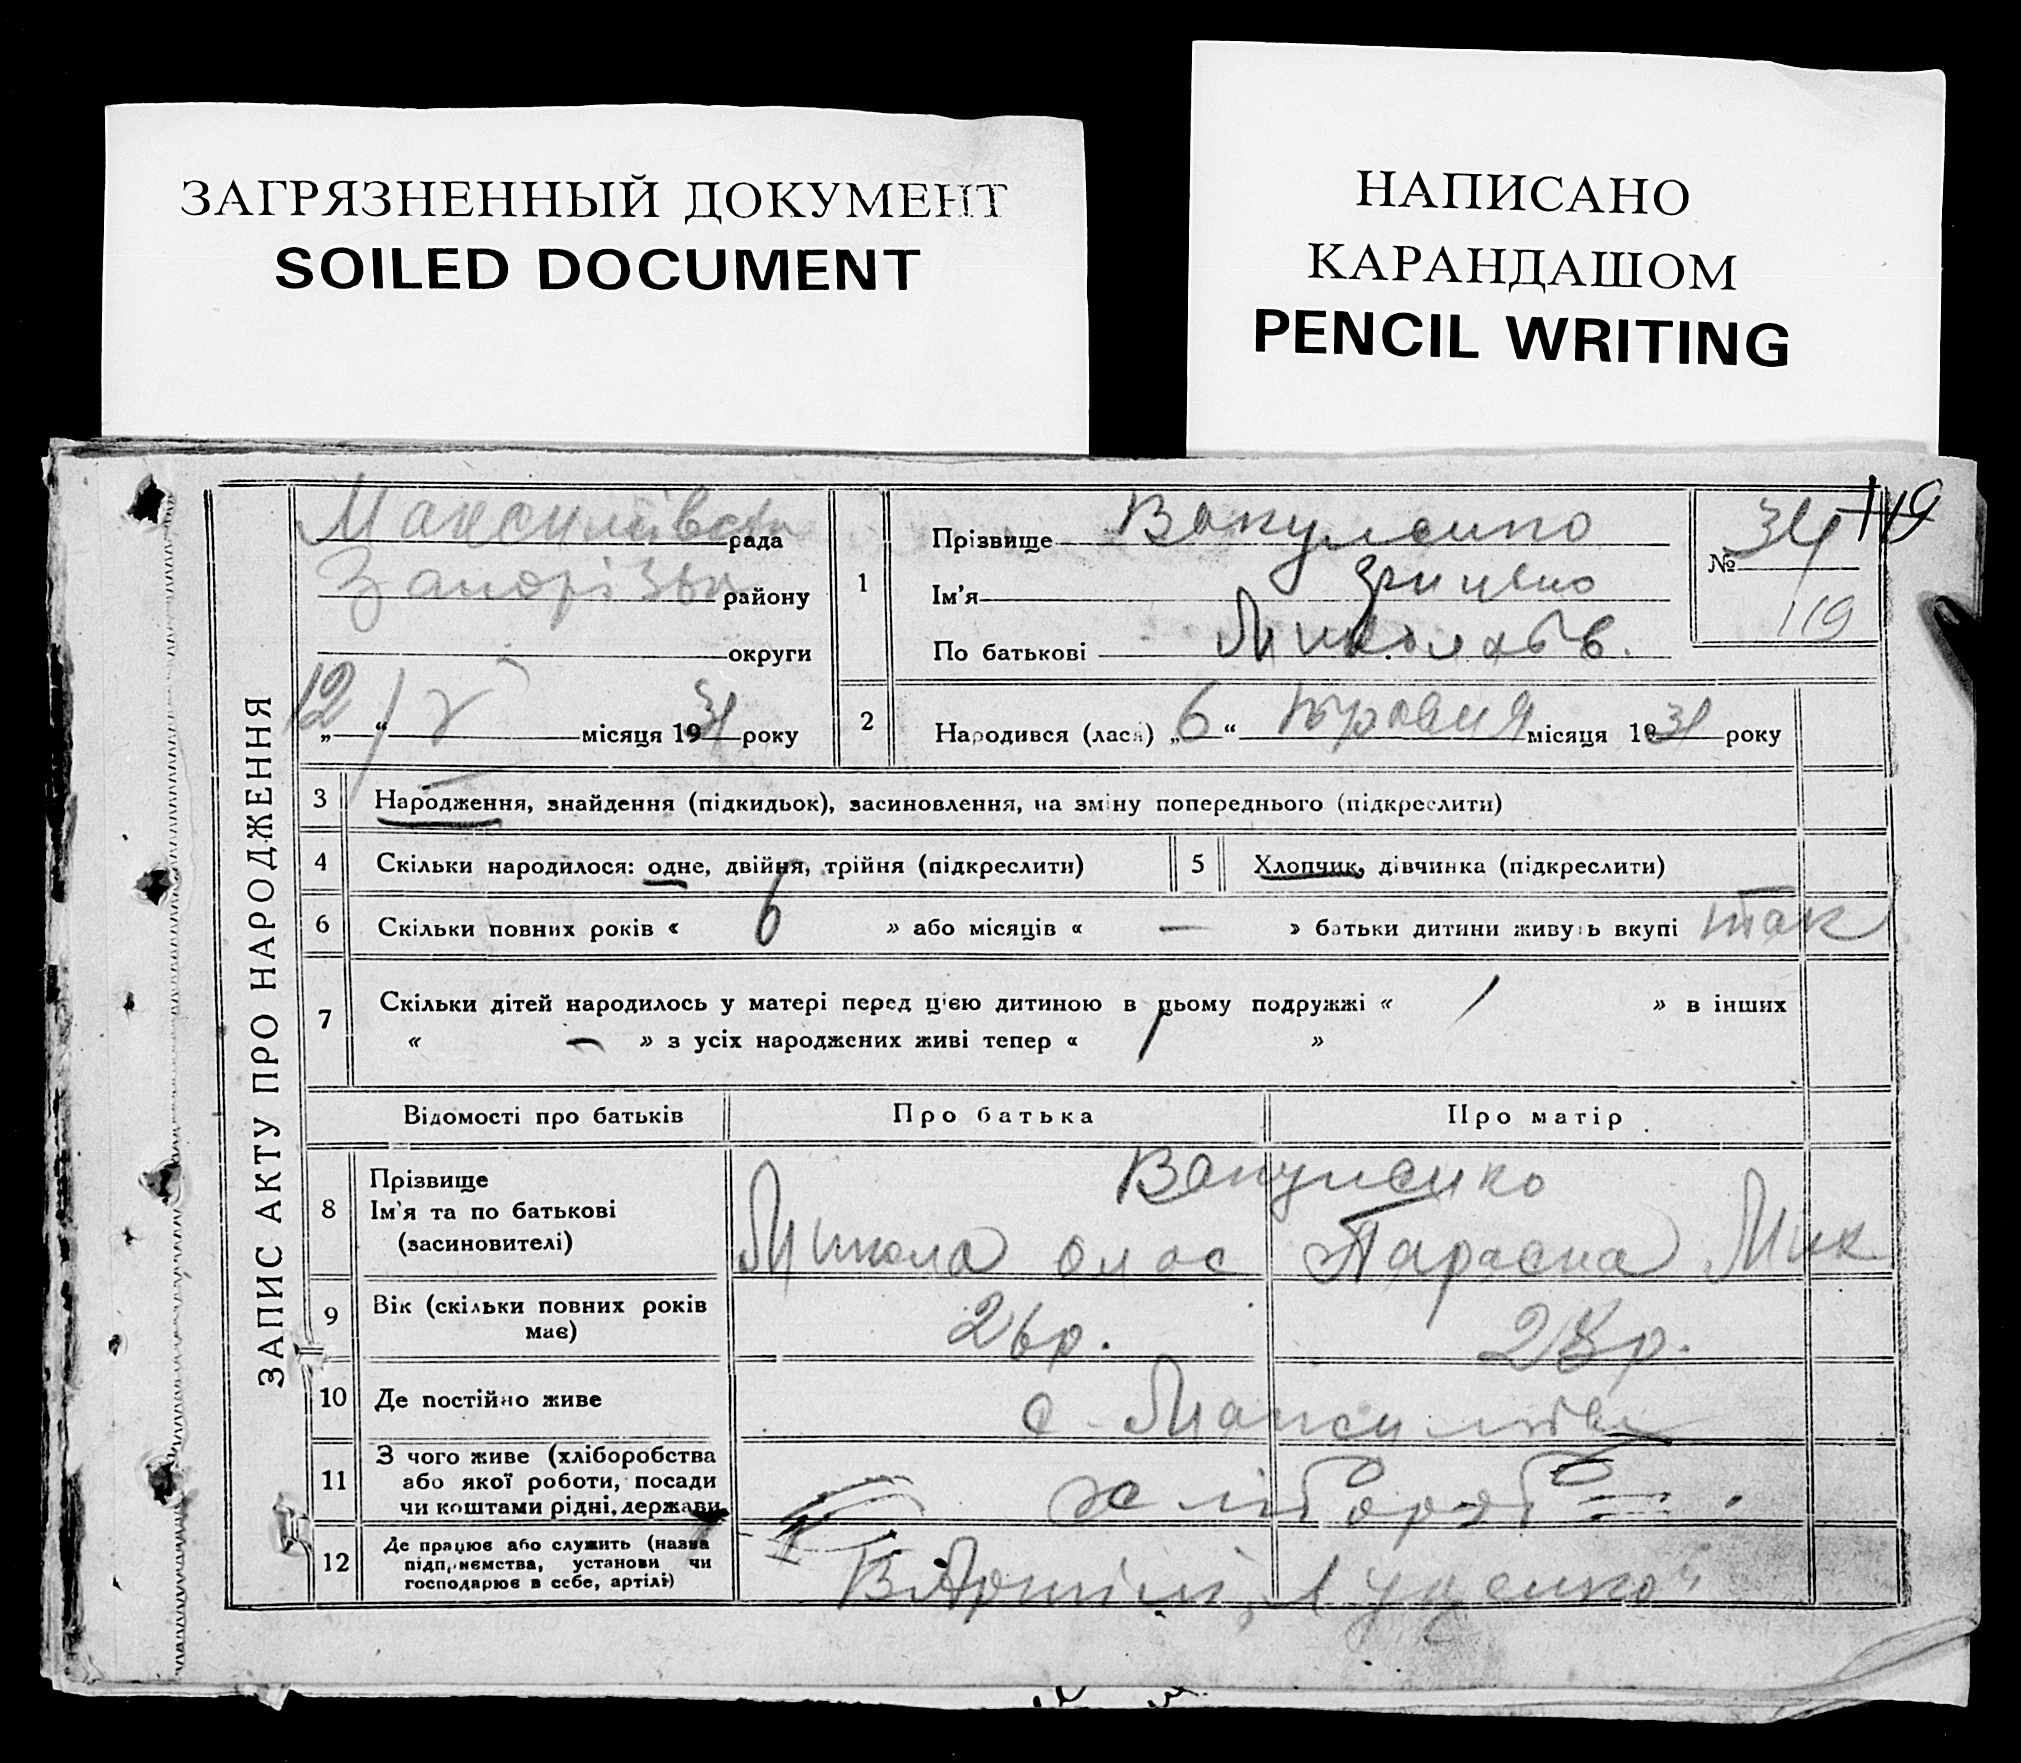 ЗАГРЯЗНЕННЫЙ ДОКУМЕНТ
SOILED DOCUMENT
НАПИСАНО
КАРАНДАШОМ
PENCIL WRITING
ЗАПИС АКТУ ПРО НАРОДЖЕННЯ
рада
Запорізьк району
округи
12/V місяця 1931 року
1
Прізвище Вакуленко
Ім'я Грицько
По батькові Миколаєв.
№ 34 119
119
2 Народився (лася) „6“ травня місяця 1931 року
3 Народження, знайдення (підкидьок), засиновлення, на зміну попереднього (підкреслити)
4 Скільки народилося: одне, двійня, трійня (підкреслити)
5 Хлопчик, дівчинка (підкреслити)
6 Скільки повних років « 6 » або місяців « — » батьки дитини живуть вкупі так
7 Скільки дітей народилось у матері перед цією дитиною в цьому подружжі « 1 » в інших
« — » з усіх народжених живі тепер « 1 »
Відомості про батьків Про батька Про матір
8 Прізвище
Ім'я та по батькові
(засиновителі)
Вакуленко
Микола Олос Параска Мик
9 Вік (скільки повних років
має)
26р. 23р.
10 Де постійно живе с.
11 З чого живе (хліборобства
або якої роботи, посади
чи коштами рідні, держави
хлібороб
12 Де працює або служить (назва
підприємства, установи чи
господарює в себе, артілі)
В Артілі Луценко